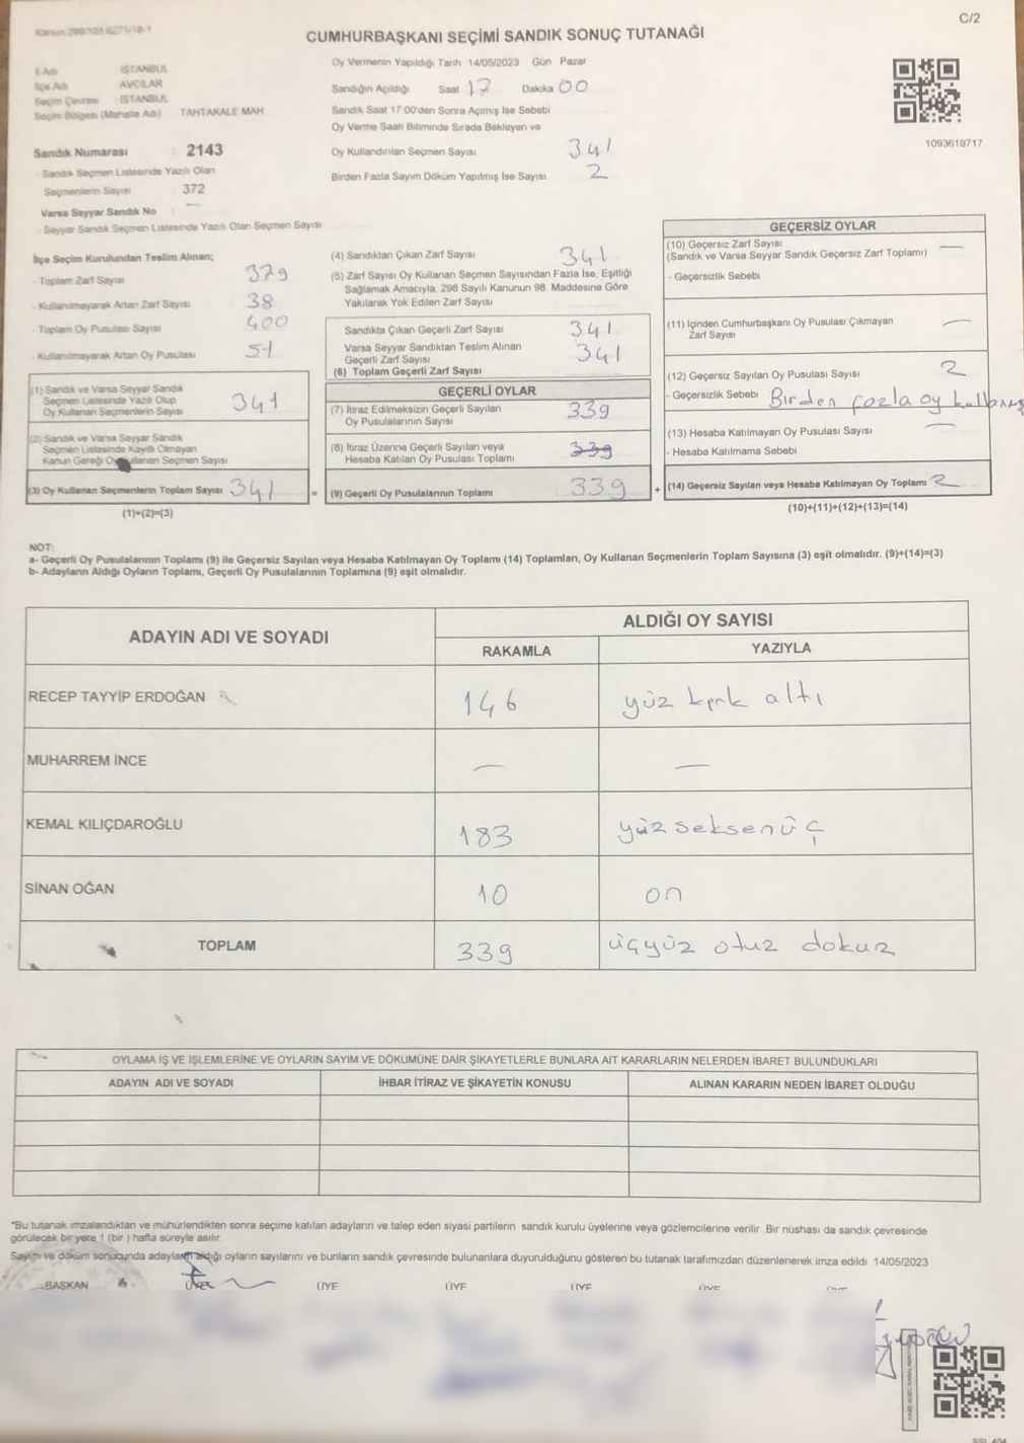 C/2
CUMHURBAŞKANI SEÇİMİ SANDIK SONUÇ TUTANAĞI
İl Adı İSTANBUL
İlçe Adı AVCILAR
Seçim Çevresi İSTANBUL
Seçim Bölgesi (Mahalle Adı) TAHTAKALE MAH
Sandık Numarası : 2143
Sandık Seçmen Listesinde Yazılı Olan
Seçmenlerin Sayısı : 372
Varsa Seyyar Sandık No : —
Seyyar Sandık Seçmen Listesinde Yazılı Olan Seçmen Sayısı
Oy Vermenin Yapıldığı Tarih 14/05/2023 Gün Pazar
Sandığın Açıldığı Saat 17 Dakika 00
Sandık Saat 17:00'den Sonra Açılmış İse Sebebi
Oy Verme Saati Bitiminde Sırada Bekleyen ve
Oy Kullandırılan Seçmen Sayısı 341
Birden Fazla Sayım Döküm Yapılmış İse Sayısı 2
1093610717
İlçe Seçim Kurulundan Teslim Alınan;
- Toplam Zarf Sayısı 379
- Kullanılmayarak Artan Zarf Sayısı 38
- Toplam Oy Pusulası Sayısı 400
- Kullanılmayarak Artan Oy Pusulası 51
(1) Sandık ve Varsa Seyyar Sandık
Seçmen Listesinde Yazılı Olup
Oy Kullanan Seçmenlerin Sayısı 341
(2) Sandık ve Varsa Seyyar Sandık
Seçmen Listesinde Kayıtlı Olmayan
Kanun Gereği Oy Kullanan Seçmen Sayısı
(3) Oy Kullanan Seçmenlerin Toplam Sayısı 341
(1)+(2)=(3)
(4) Sandıktan Çıkan Zarf Sayısı 341
(5) Zarf Sayısı Oy Kullanan Seçmen Sayısından Fazla İse, Eşitliği
Sağlamak Amacıyla, 298 Sayılı Kanunun 98. Maddesine Göre
Yakılarak Yok Edilen Zarf Sayısı
Sandıkta Çıkan Geçerli Zarf Sayısı 341
Varsa Seyyar Sandıktan Teslim Alınan
Geçerli Zarf Sayısı 341
(6) Toplam Geçerli Zarf Sayısı
GEÇERLİ OYLAR
(7) İtiraz Edilmeksizin Geçerli Sayılan
Oy Pusulalarının Sayısı 339
(8) İtiraz Üzerine Geçerli Sayılan veya
Hesaba Katılan Oy Pusulası Toplamı 339
= (9) Geçerli Oy Pusulalarının Toplamı 339
GEÇERSİZ OYLAR
(10) Geçersiz Zarf Sayısı —
(Sandık ve Varsa Seyyar Sandık Geçersiz Zarf Toplamı)
- Geçersizlik Sebebi
(11) İçinden Cumhurbaşkanı Oy Pusulası Çıkmayan —
Zarf Sayısı
(12) Geçersiz Sayılan Oy Pusulası Sayısı 2
- Geçersizlik Sebebi Birden fazla oy
(13) Hesaba Katılmayan Oy Pusulası Sayısı —
- Hesaba Katılmama Sebebi
+ (14) Geçersiz Sayılan veya Hesaba Katılmayan Oy Toplamı 2
(10)+(11)+(12)+(13)=(14)
NOT:
a- Geçerli Oy Pusulalarının Toplamı (9) ile Geçersiz Sayılan veya Hesaba Katılmayan Oy Toplamı (14) Toplamları, Oy Kullanan Seçmenlerin Toplam Sayısına (3) eşit olmalıdır. (9)+(14)=(3)
b- Adayların Aldığı Oyların Toplamı, Geçerli Oy Pusulalarının Toplamına (9) eşit olmalıdır.
ADAYIN ADI VE SOYADI
ALDIĞI OY SAYISI
RAKAMLA YAZIYLA
RECEP TAYYİP ERDOĞAN 146 yüz kırk altı
MUHARREM İNCE — —
KEMAL KILIÇDAROĞLU 183 yüz seksen üç
SİNAN OĞAN 10 on
TOPLAM 339 üçyüz otuz dokuz
OYLAMA İŞ VE İŞLEMLERİNE VE OYLARIN SAYIM VE DÖKÜMÜNE DAİR ŞİKAYETLERLE BUNLARA AİT KARARLARIN NELERDEN İBARET BULUNDUKLARI
ADAYIN ADI VE SOYADI İHBAR İTİRAZ VE ŞİKAYETİN KONUSU ALINAN KARARIN NEDEN İBARET OLDUĞU
"Bu tutanak imzalandıktan ve mühürlendikten sonra seçime katılan adayların ve talep eden siyasi partilerin sandık kurulu üyelerine veya gözlemcilerine verilir. Bir nüshası da sandık çevresinde
görülecek bir yere 1 (bir ) hafta süreyle asılır.
Sayım ve döküm sonucunda adayların aldığı oyların sayılarını ve bunların sandık çevresinde bulunanlara duyurulduğunu gösteren bu tutanak tarafımızdan düzenlenerek imza edildi 14/05/2023
BAŞKAN ÜYE ÜYE ÜYE ÜYE